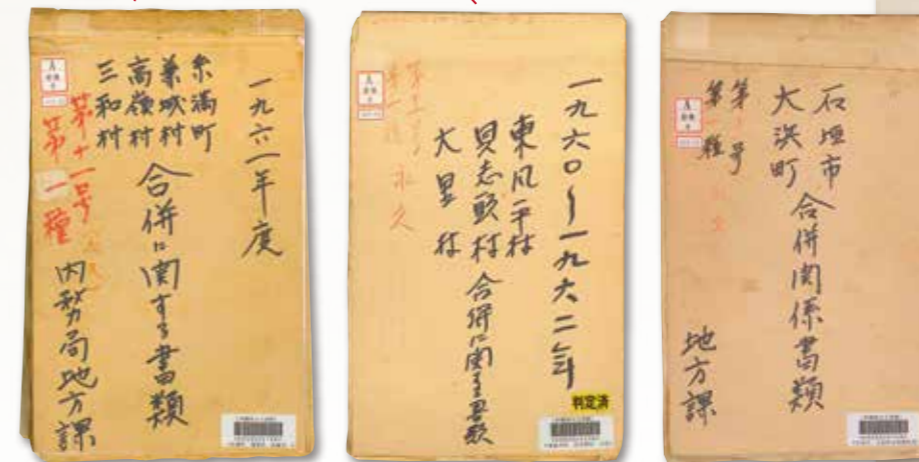 一九六一年度
糸満町
兼城村
高嶺村
三和村
合併に関する書類
第十一号
第一種
内務局地方課
一九六〇〜一九六二年
東風平村
具志頭村
大里村
合併に関する書類
永久
判定済
石垣市
大浜町
合併関係書類
第 号
第 種
地方課